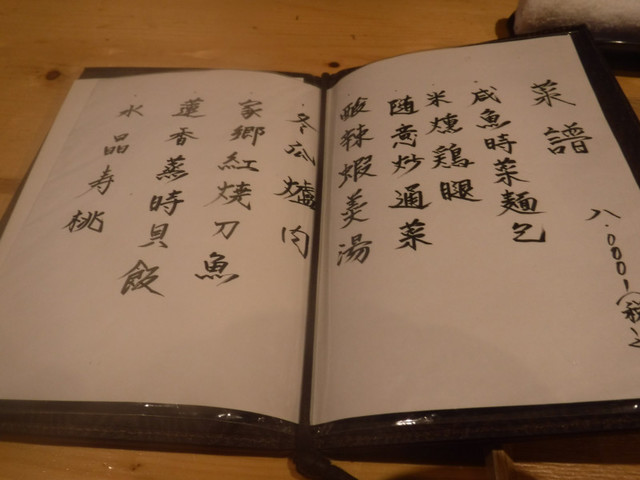 菜譜
八.000!(税込
咸魚時菜麺包
米燻鶏腿
随意炒通菜
酸辣蝦羹湯
冬瓜爐肉
家郷紅燒刀魚
蓮香蒸時貝飯
水晶寿桃